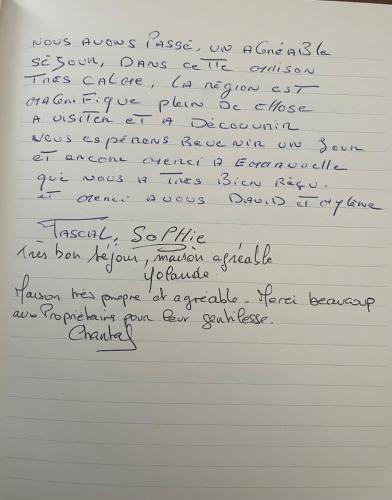 NOUS AVONS PASSÉ, UN AGRÉABLE
SÉJOUR, DANS CETTE MAISON
TRÈS CALME, LA RÉGION EST
MAGNIFIQUE PLEIN DE CHOSE
A VISITER ET A DÉCOUVRIR
NOUS ESPÉRONS REVENIR UN JOUR
ET ENCORE MERCI A EMMANUELLE
QUI NOUS A TRES BIEN REÇU.
ET MERCI A VOUS DAVID ET MYLÈNE
PASCAL, SOPHIE
Très bon séjour, maison agréable
Yolande
Maison très propre et agréable - Merci beaucoup
aux Propriétaires pour leur gentillesse.
Chantal